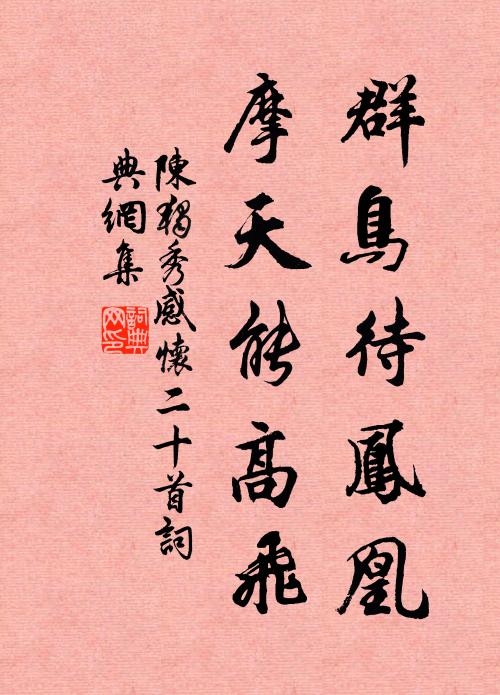 群鳥待鳳凰
摩天能高飛
陳獨秀感懷二十首詞
典網集
詞典
网印